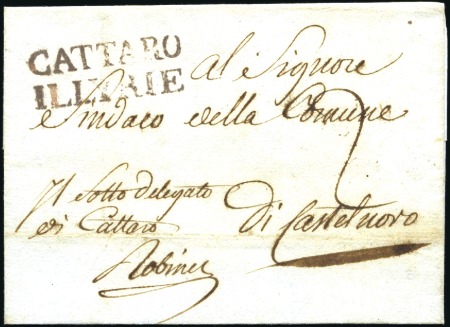 CATTARO
ILLYRIE
Al Signore
Sindaco della Comune
2
Il Sotto Delegato
di Cattaro
Robinet
di Castelnovo